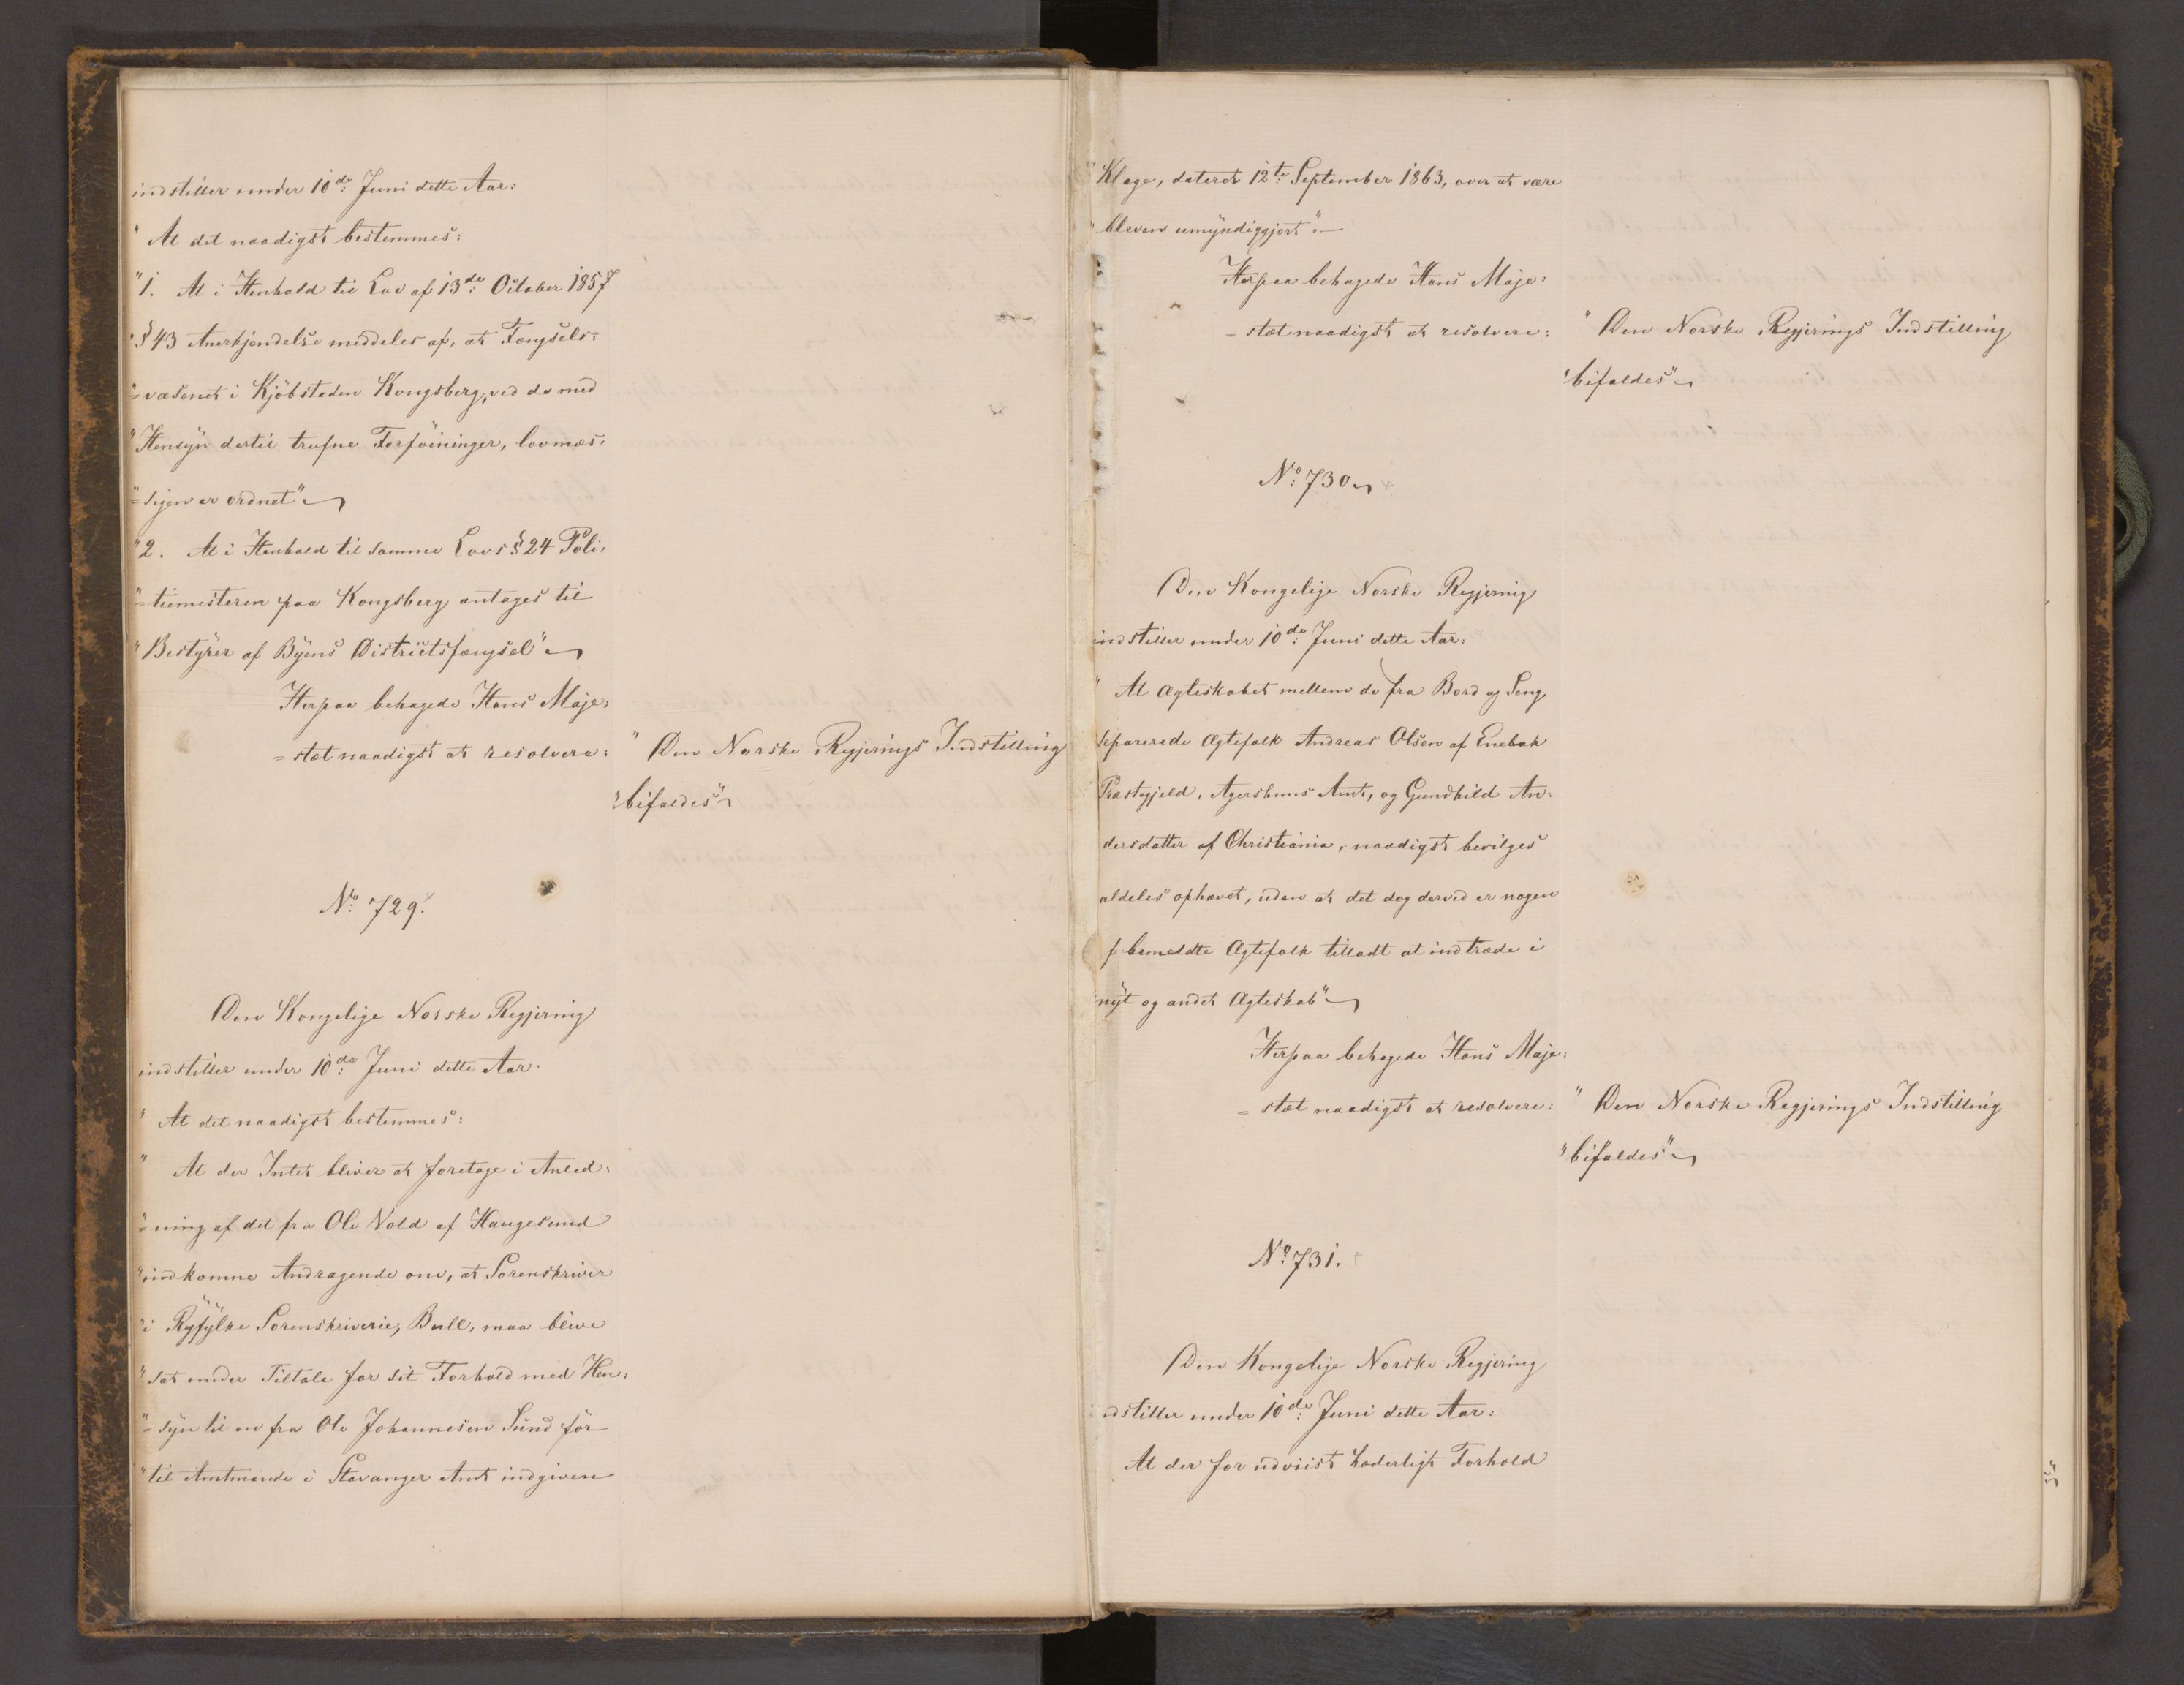 indstiller under 10de: Juni dette Aar:
"At det naadigst bestemmes:
"1. At i Henhold til Lov af 13de: October 1857
"§43 Anerkjendelse meddeles af, at Fængsels=
"=væsenet i Kjöbstaden Kongsberg, ved de med
"Hensyn dertil trufne Forföininger, lovmæs=
"=sigen er ordnet"
"2. At i Henhold til samme Lovs §24 Poli=
"=timesteren paa Kongsberg antages til
"Bestyrer af Byens Districtsfængsel"
Herpaa behagede Hans Maje=
=stæt naadigst at resolvere:
"Den Norske Regjerings Indstilling
"bifaldes"
No: 729.
Den Kongelige Norske Regjering
indstiller under 10de: Juni dette Aar.
"At det naadigst bestemmes:
"At der Intet bliver at foretage i Anled=
"=ning af det fra Ole Vold af Haugesund
"indkomne Andragende om, at Sorenskriver
"i Ryfylke Sorenskriverie, Bull, maa blive
"sat under Tiltale for sit Forhold med Hen=
"=syn til en fra Ole Johannesen Sund för
"til Amtmanden i Stavanger Amt indgiven
"Klage, dateret 12te: September 1863, over at være
"bleven umyndiggjort".
Herpaa behagede Hans Maje=
=stæt naadigst at resolvere:
"Den Norske Regjerings Indstilling
"bifaldes"
No: 730
Den Kongelige Norske Regjering
indstiller under 10de: Juni dette Aar:
"At Ægteskabet mellem de fra Bord og Seng
separerede Ægtefolk Andreas Olsen af Enebak
Præstegjeld, Agershuus Amt, og Gundhild An=
dersdatter af Christiania, naadigst bevilges
aldeles ophævet, uden at det dog derved er nogen
f bemeldte Ægtefolk tilladt at indtræde i
nyt og andet Ægteskab"
Herpaa behagede Hans Maje=
=stæt naadigst at resolvere:
"Den Norske Regjerings Indstilling
"bifaldes"
No: 731.
Den Kongelige Norske Regjering
indstiller under 10de: Juni dette Aar:
At der for udviist hæderligt Forhold